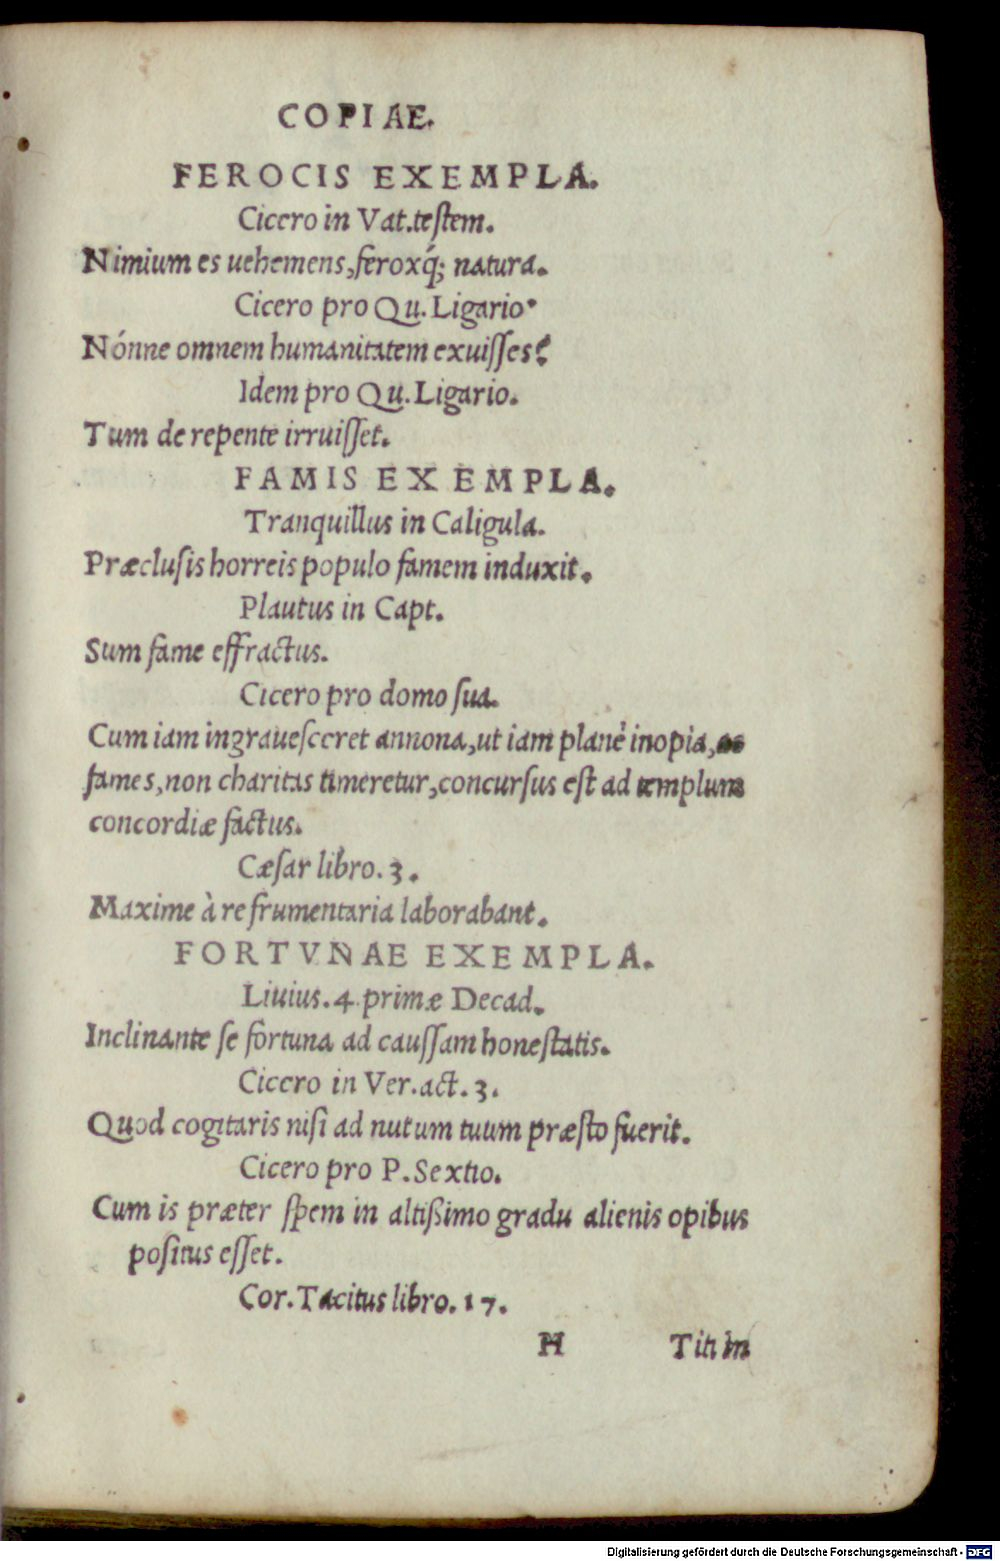 COPIAE.
FEROCIS EXEMPLA.
Cicero in Vat. testem.
Nimium es uehemens, feroxq́; natura.
Cicero pro Qu. Ligario.
Nónne omnem humanitatem exuisses?
Idem pro Qu. Ligario.
Tum de repente irruisset.
FAMIS EXEMPLA.
Tranquillus in Caligula.
Præclusis horreis populo famem induxit.
Plautus in Capt.
Sum fame effractus.
Cicero pro domo sua.
Cum iam ingrauesceret annona, ut iam planè inopia, ac
fames, non charitas timeretur, concursus est ad templum
concordiæ factus.
Cæsar libro. 3.
Maxime à re frumentaria laborabant.
FORTVNAE EXEMPLA.
Liuius. 4. primæ Decad.
Inclinante se fortuna ad caussam honestatis.
Cicero in Ver. act. 3.
Quod cogitaris nisi ad nutum tuum præsto fuerit.
Cicero pro P. Sextio.
Cum is præter spem in altißimo gradu alienis opibus
positus esset.
Cor. Tacitus libro. 17.
H Titi in
Digitalisierung gefördert durch die Deutsche Forschungsgemeinschaft - DFG